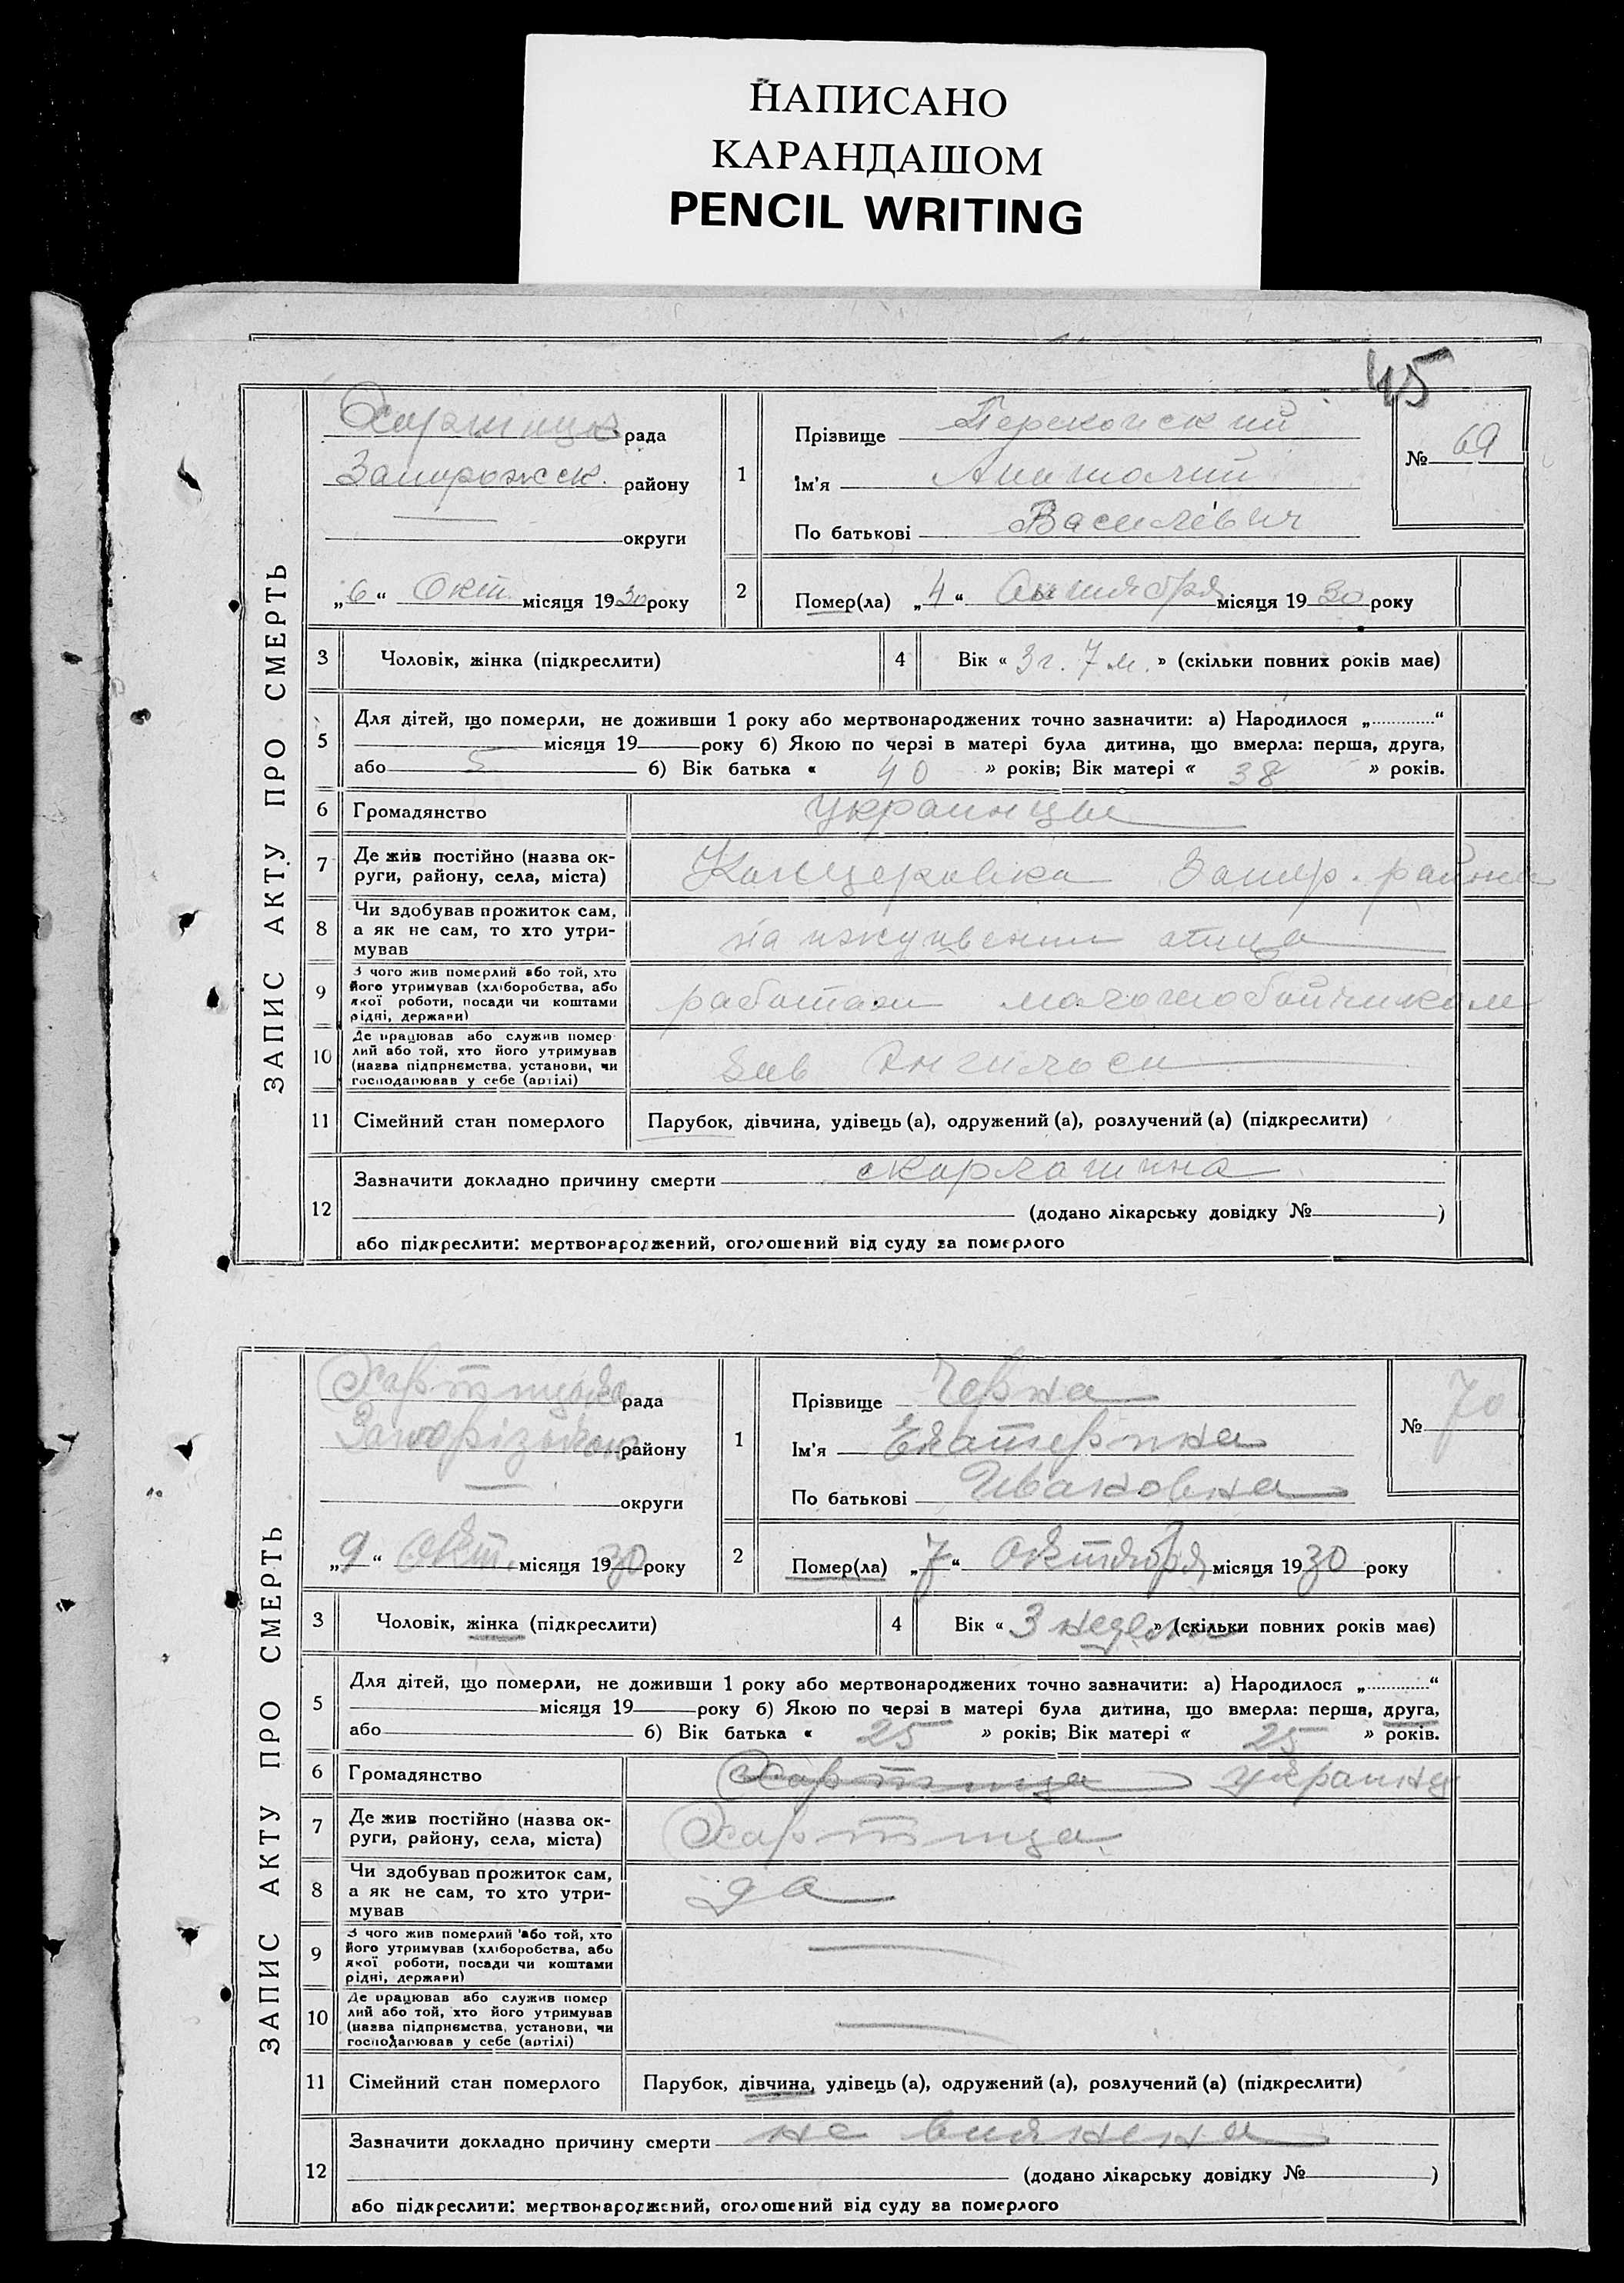 НАПИСАНО
КАРАНДАШОМ
PENCIL WRITING
45
ЗАПИС АКТУ ПРО СМЕРТЬ
рада
Запорожск. району
округи
„6“ Окт. місяця 1930 року
1
Прізвище
Ім'я Анатолий
По батькові Василевич
№ 69
2
Помер(ла) „4“ Октября місяця 1930 року
3 Чоловік, жінка (підкреслити)
4 Вік « 3 г. 7 м. » (скільки повних років має)
5
Для дітей, що померли, не доживши 1 року або мертвонароджених точно зазначити: а) Народилося „ “
місяця 19 року б) Якою по черзі в матері була дитина, що вмерла: перша, друга,
або 5 б) Вік батька « 40 » років; Вік матері « 38 » років.
6 Громадянство украинцы
7 Де жив постійно (назва ок-
руги, району, села, міста)
Канцеровка Запор. района
8 Чи здобував прожиток сам,
а як не сам, то хто утри-
мував
на иждивении отца
9 З чого жив померлий або той, хто
його утримував (хліборобства, або
якої роботи, посади чи коштами
рідні, держави)
работал молотобойчиком
10 Де працював або служив помер
лий або той, хто його утримував
(назва підприємства, установи, чи
господарював у себе (артілі)
11 Сімейний стан померлого Парубок, дівчина, удівець (а), одружений (а), розлучений (а) (підкреслити)
12
Зазначити докладно причину смерти скарлатина
(додано лікарську довідку № )
або підкреслити: мертвонароджений, оголошений від суду за померлого
ЗАПИС АКТУ ПРО СМЕРТЬ
рада
району
округи
„9“ Окт. місяця 1930 року
1
Прізвище Черна
Ім'я Екатерина
По батькові Ивановна
№ 70
2
Помер(ла) „7“ Октября місяця 1930 року
3 Чоловік, жінка (підкреслити)
4 Вік « 3 недели » (скільки повних років має)
5
Для дітей, що померли, не доживши 1 року або мертвонароджених точно зазначити: а) Народилося „ “
місяця 19 року б) Якою по черзі в матері була дитина, що вмерла: перша, друга,
або б) Вік батька « 25 » років; Вік матері « 25 » років.
6 Громадянство Хортица украинка
7 Де жив постійно (назва ок-
руги, району, села, міста)
Хортица
8 Чи здобував прожиток сам,
а як не сам, то хто утри-
мував
да
9 З чого жив померлий або той, хто
його утримував (хліборобства, або
якої роботи, посади чи коштами
рідні, держави)
10 Де працював або служив помер
лий або той, хто його утримував
(назва підприємства, установи, чи
господарював у себе (артілі)
11 Сімейний стан померлого Парубок, дівчина, удівець (а), одружений (а), розлучений (а) (підкреслити)
12
Зазначити докладно причину смерти не
(додано лікарську довідку № )
або підкреслити: мертвонароджений, оголошений від суду за померлого